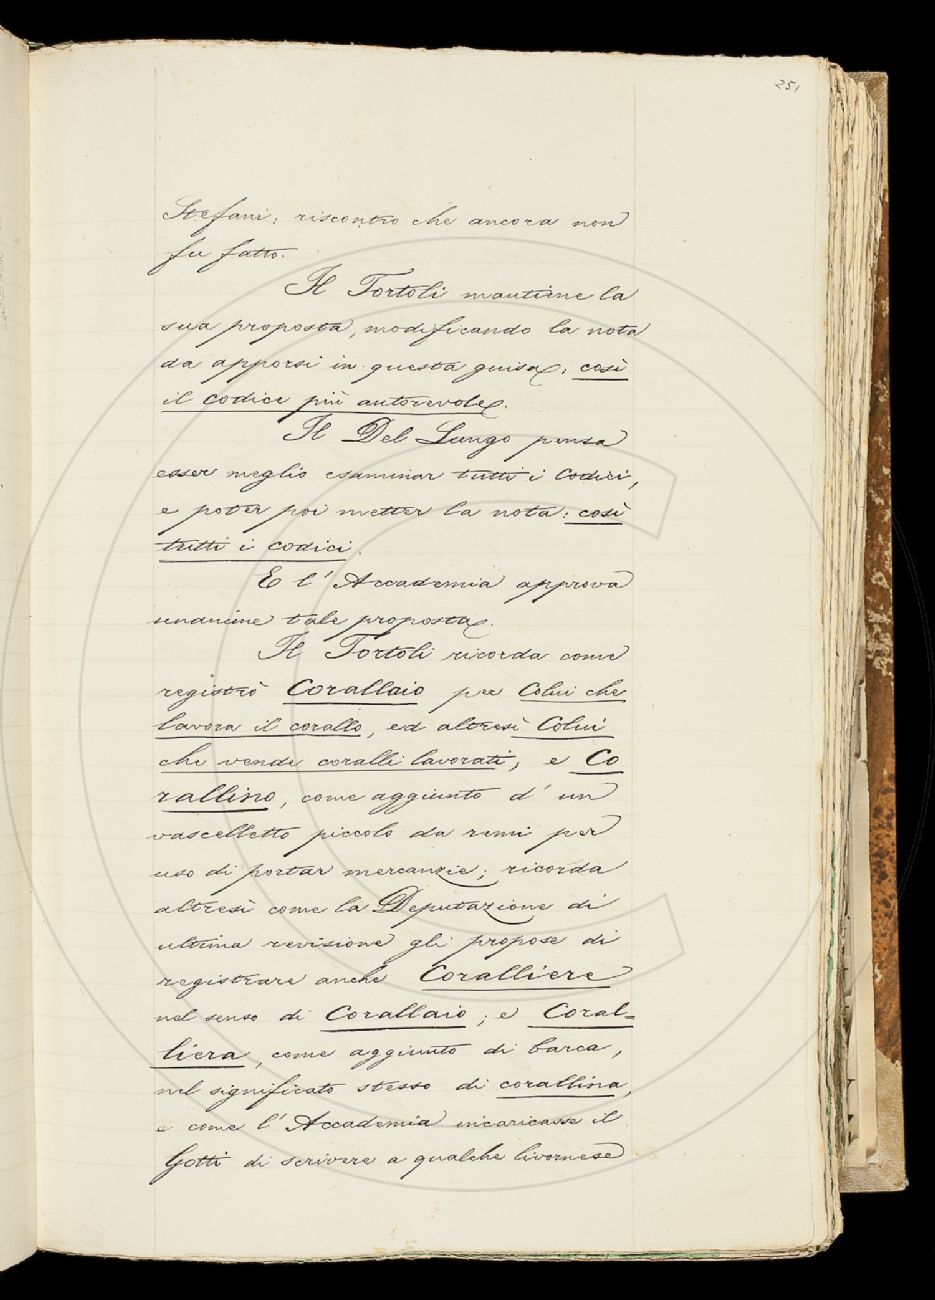 251
Stefani; riscontro che ancora non
fu fatto.
Il Tortoli mantiene la
sua proposta, modificando la nota
da apporsi in questa guisa: così
il codice più autorevole.
Il Del Lungo pensa
esser meglio esaminar tutti i Codici,
e poter poi metter la nota: così
tutti i codici.
E l'Accademia approva
unanime tale proposta.
Il Tortoli ricorda come
registrò Corallaio per Colui che
lavora il corallo, ed altresì Colui
che vende coralli lavorati; e Co
rallino, come aggiunto d'un
vascelletto piccolo da remi per
uso di portar mercanzie; ricorda
altresì come la Deputazione di
ultima revisione gli propose di
registrare anche Coralliere
nel senso di Corallaio; e Coral=
liera, come aggiunto di barca,
nel significato stesso di corallina,
e come l'Accademia incaricasse il
Gotti di scrivere a qualche livornese